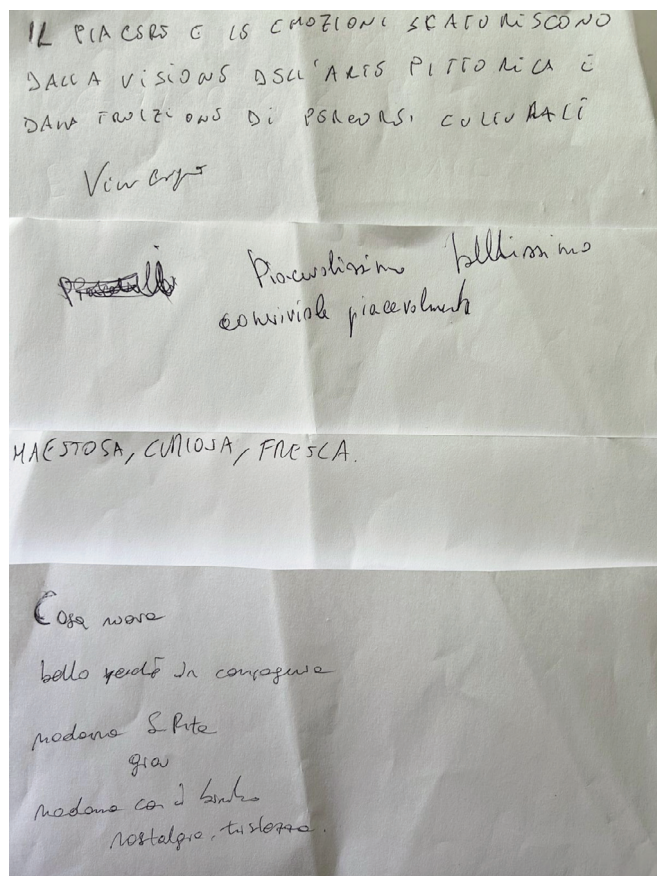 IL PIACERE E LE EMOZIONI SCATURISCONO
DALLA VISIONE DELL'ARTE PITTORICA E
DALLA FRUIZIONE DI PERCORSI CULTURALI
Piacevolissimo bellissimo
conviviale piacevolmente
MAESTOSA, CURIOSA, FRESCA.
Cosa nuova
bello perché in compagnia
madonna S Rita
gioia
madonna con il bimbo
nostalgia, tristezza.